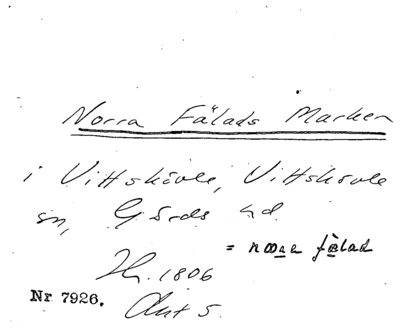 Norra Fälads Marken
i Vittskövle, Vittskövle
sn, Gärds hd.
= norra fälad
1806
Nr 7926. Akt 5.